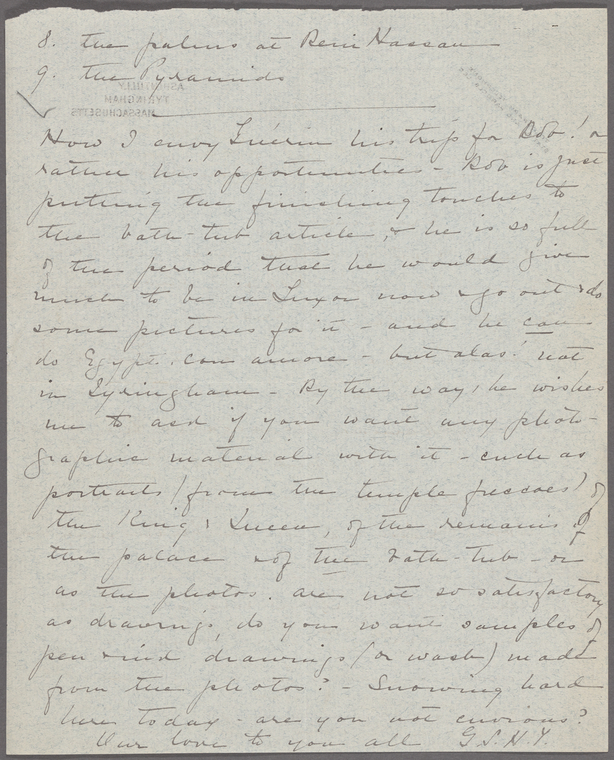 8. the palms at Beni Hassan
9. the Pyramids
ASHINTULLY
TYRINGHAM
MASSACHUSETTS
How I envy Guérin his trip for Bob! or
rather his opportunities - Bob is just
putting the finishing touches to
the bath-tub article, & he is so full
of the period that he would give
much to be in Luxor now & go out & do
some pictures for it - and he can
do Egypt con amore - but alas! not
in Tyringham - By the way, he wishes
me to ask if you want any photo-
graphic material with it - such as
portraits (from the temple frescoes) of
the King & Queen, of the remains of
the palace & of the bath-tub - or
as the photos. are not so satisfactory
as drawings, do you want samples of
pen & ink drawings (or wash) made
from the photos? - Snowing hard
here today - are you not envious?
Our love to you all G.S.H.Y.